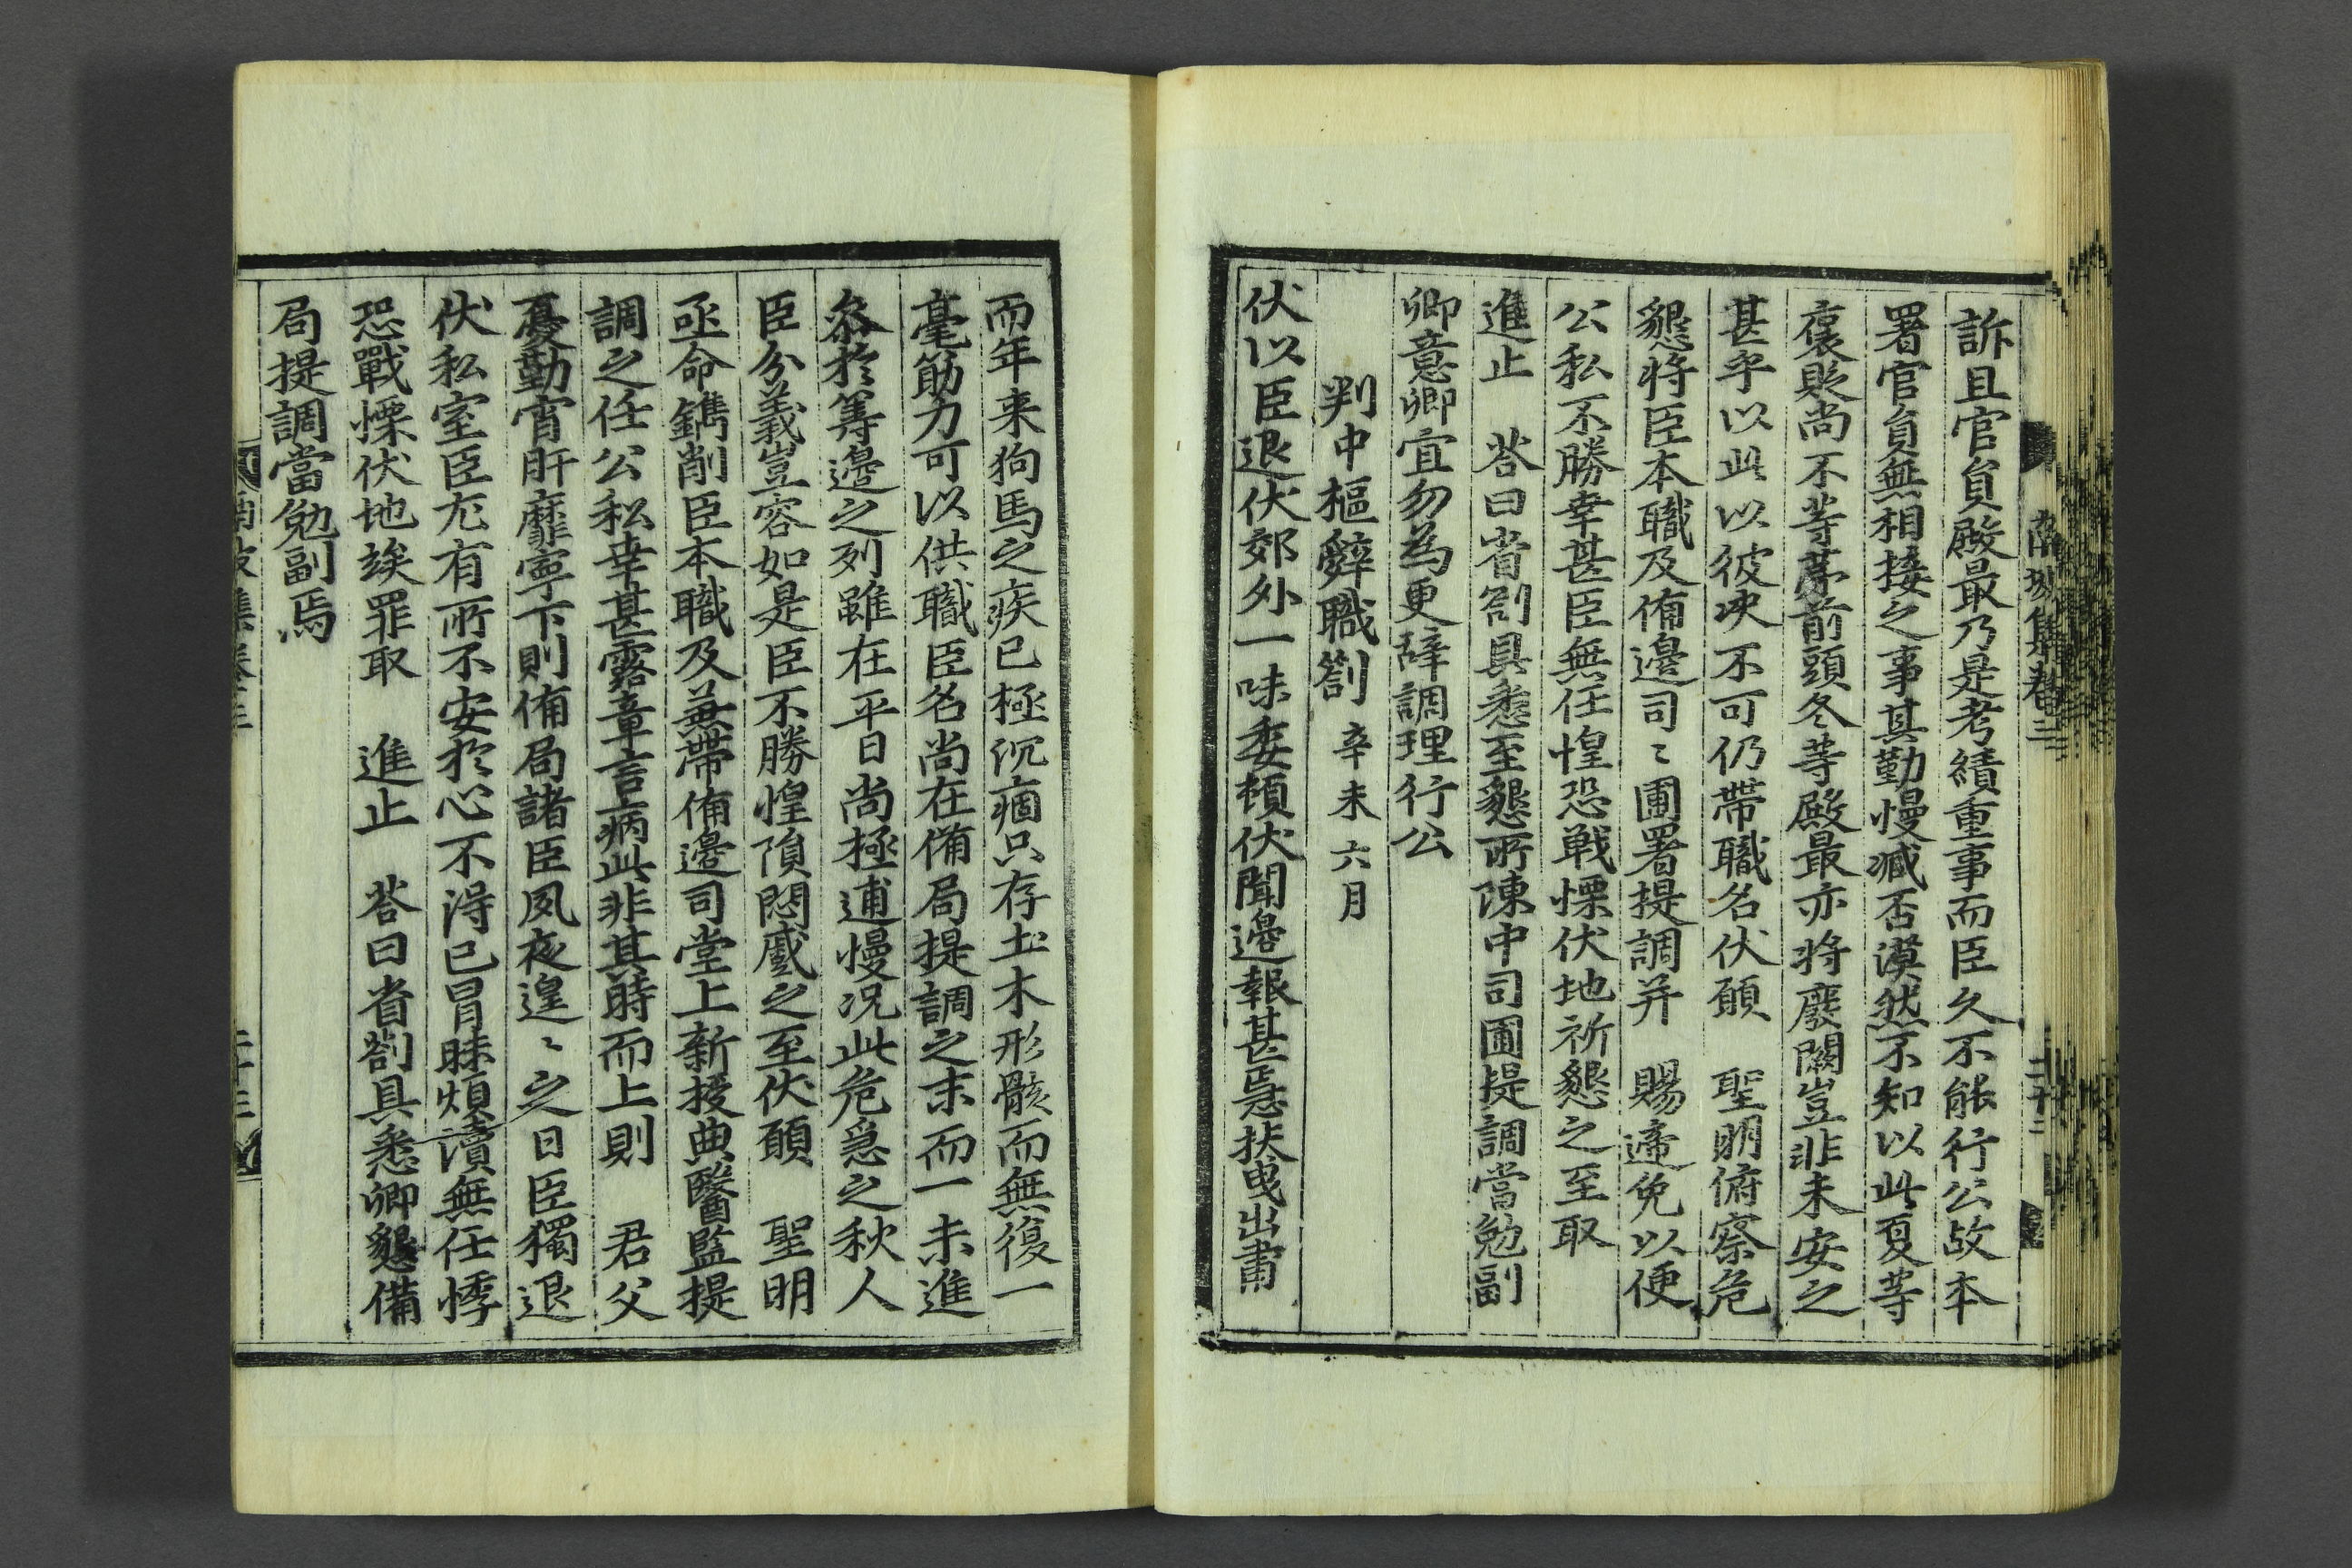 訴且官負殿最乃是考績重事而臣久不能行公故本
署官負無相接之事其勤慢臧否漠然不知以此夏等
褒貶尚不等第前頭冬等殿最亦将廢闕豈非未安之
甚乎以此以彼决不可仍帶職名伏願　聖明俯察危
懇将臣本職及俻邊司〻圃署提調并　賜遞免以便
公私不勝幸甚臣無任惶恐戰慄伏地祈懇之至取
進止　答曰省劄具悉至懇所陳中司圃提調當勉副
卿意卿宜勿為更辭調理行公
判中樞辭職劄 辛未六月
伏以臣退伏郊外一味委頓伏聞邊報甚急扶曵出肅
而年来狗馬之疾已極沉痼只存土木形骸而無復一
毫筋力可以供職臣名尚在俻局提調之末而一未進
叅於籌邊之列雖在平日尚極逋慢况此危急之秋人
臣分義豈容如是臣不勝惶隕悶蹙之至伏願　聖明
亟命鐫削臣本職及兼帶俻邊司堂上新授典醫監提
調之任公私幸甚露章言病此非其時而上則　君父
憂勤宵旰靡寧下則俻局諸臣夙夜遑〻之日臣獨退
伏私室臣尤有所不安於心不得已冒昧煩瀆無任悸
恐戰慄伏地竢罪取　進止　答曰省劄具悉卿懇備
局提調當勉副焉